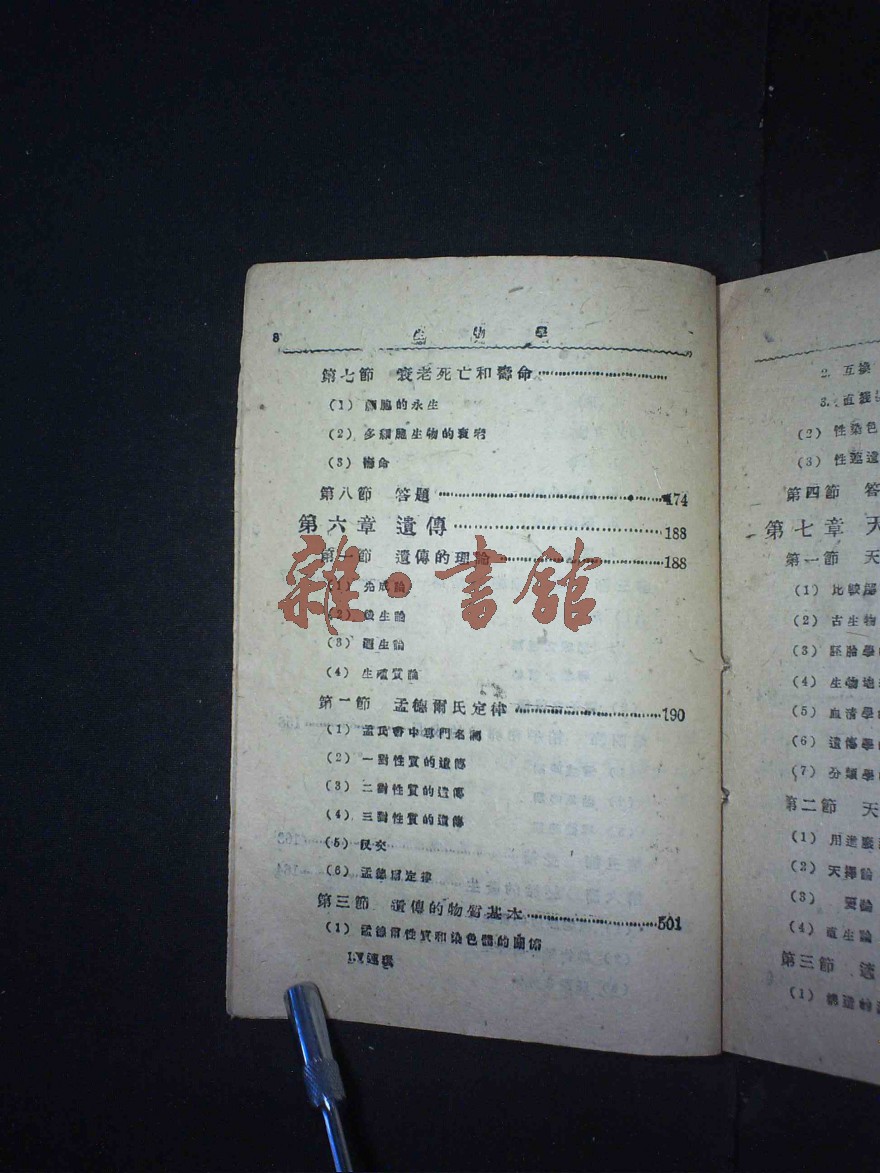 8 生物學
第七節 衰老死亡和壽命
(1) 細胞的永生
(2) 多細胞生物的衰老
(3) 壽命
第八節 答題 174
第六章 遺傳 188
第一節 遺傳的理論 188
(1) 先成論
(2) 後生論
(3)
(4)
第一節 孟德爾氏定律 190
(1) 孟氏書中專門名詞
(2) 一對性質的遺傳
(3) 二對性質的遺傳
(4) 三對性質的遺傳
(5) 反交
(6) 孟德爾定律
第三節 遺傳的物質基本 501
(1) 孟德爾性質和染色體的關係
雜·書館
2. 互換
3.
(2) 性染色
(3) 性
第四節 答
第七章 天
第一節 天
(1) 比較解
(2) 古生物
(3) 胚胎學
(4) 生物地
(5) 血清學
(6) 遺傳學
(7) 分類學
第二節 天
(1) 用進廢
(2) 天擇論
(3)
(4)
第三節
(1)